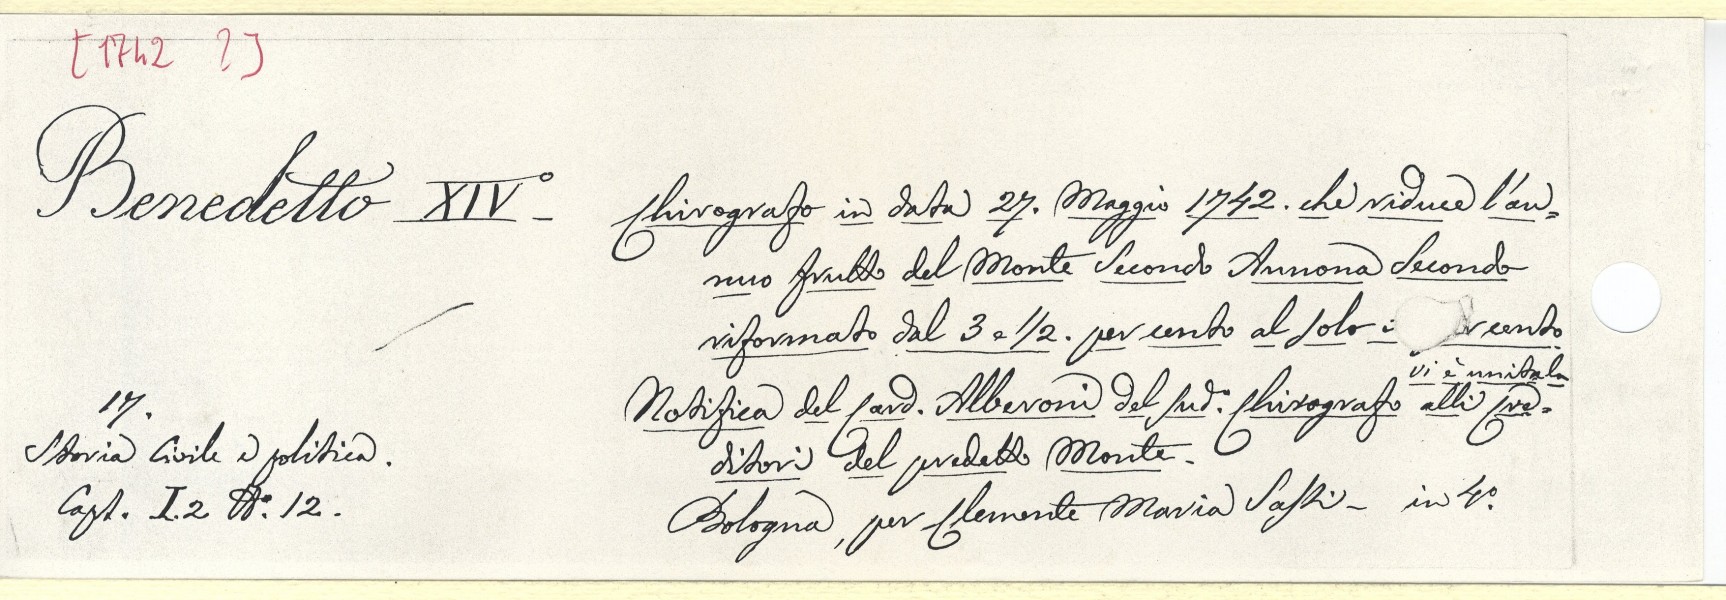 [1742 ?]
Benedetto XIV°_
Chirografo in data 27. Maggio 1742. che riduce l'an=
nuo frutto del Monte Secondo Annona Secondo
riformato dal 3 e 1/2. per cento al solo cento
vi è unita la
Notifica del Card. Alberoni del sud.° Chirografo alli Cre=
ditori del predetto Monte.
Bologna, per Clemente Maria Sassi_ in 4°.
17.
Storia Civile e politica.
Capt. I.2 N°. 12.